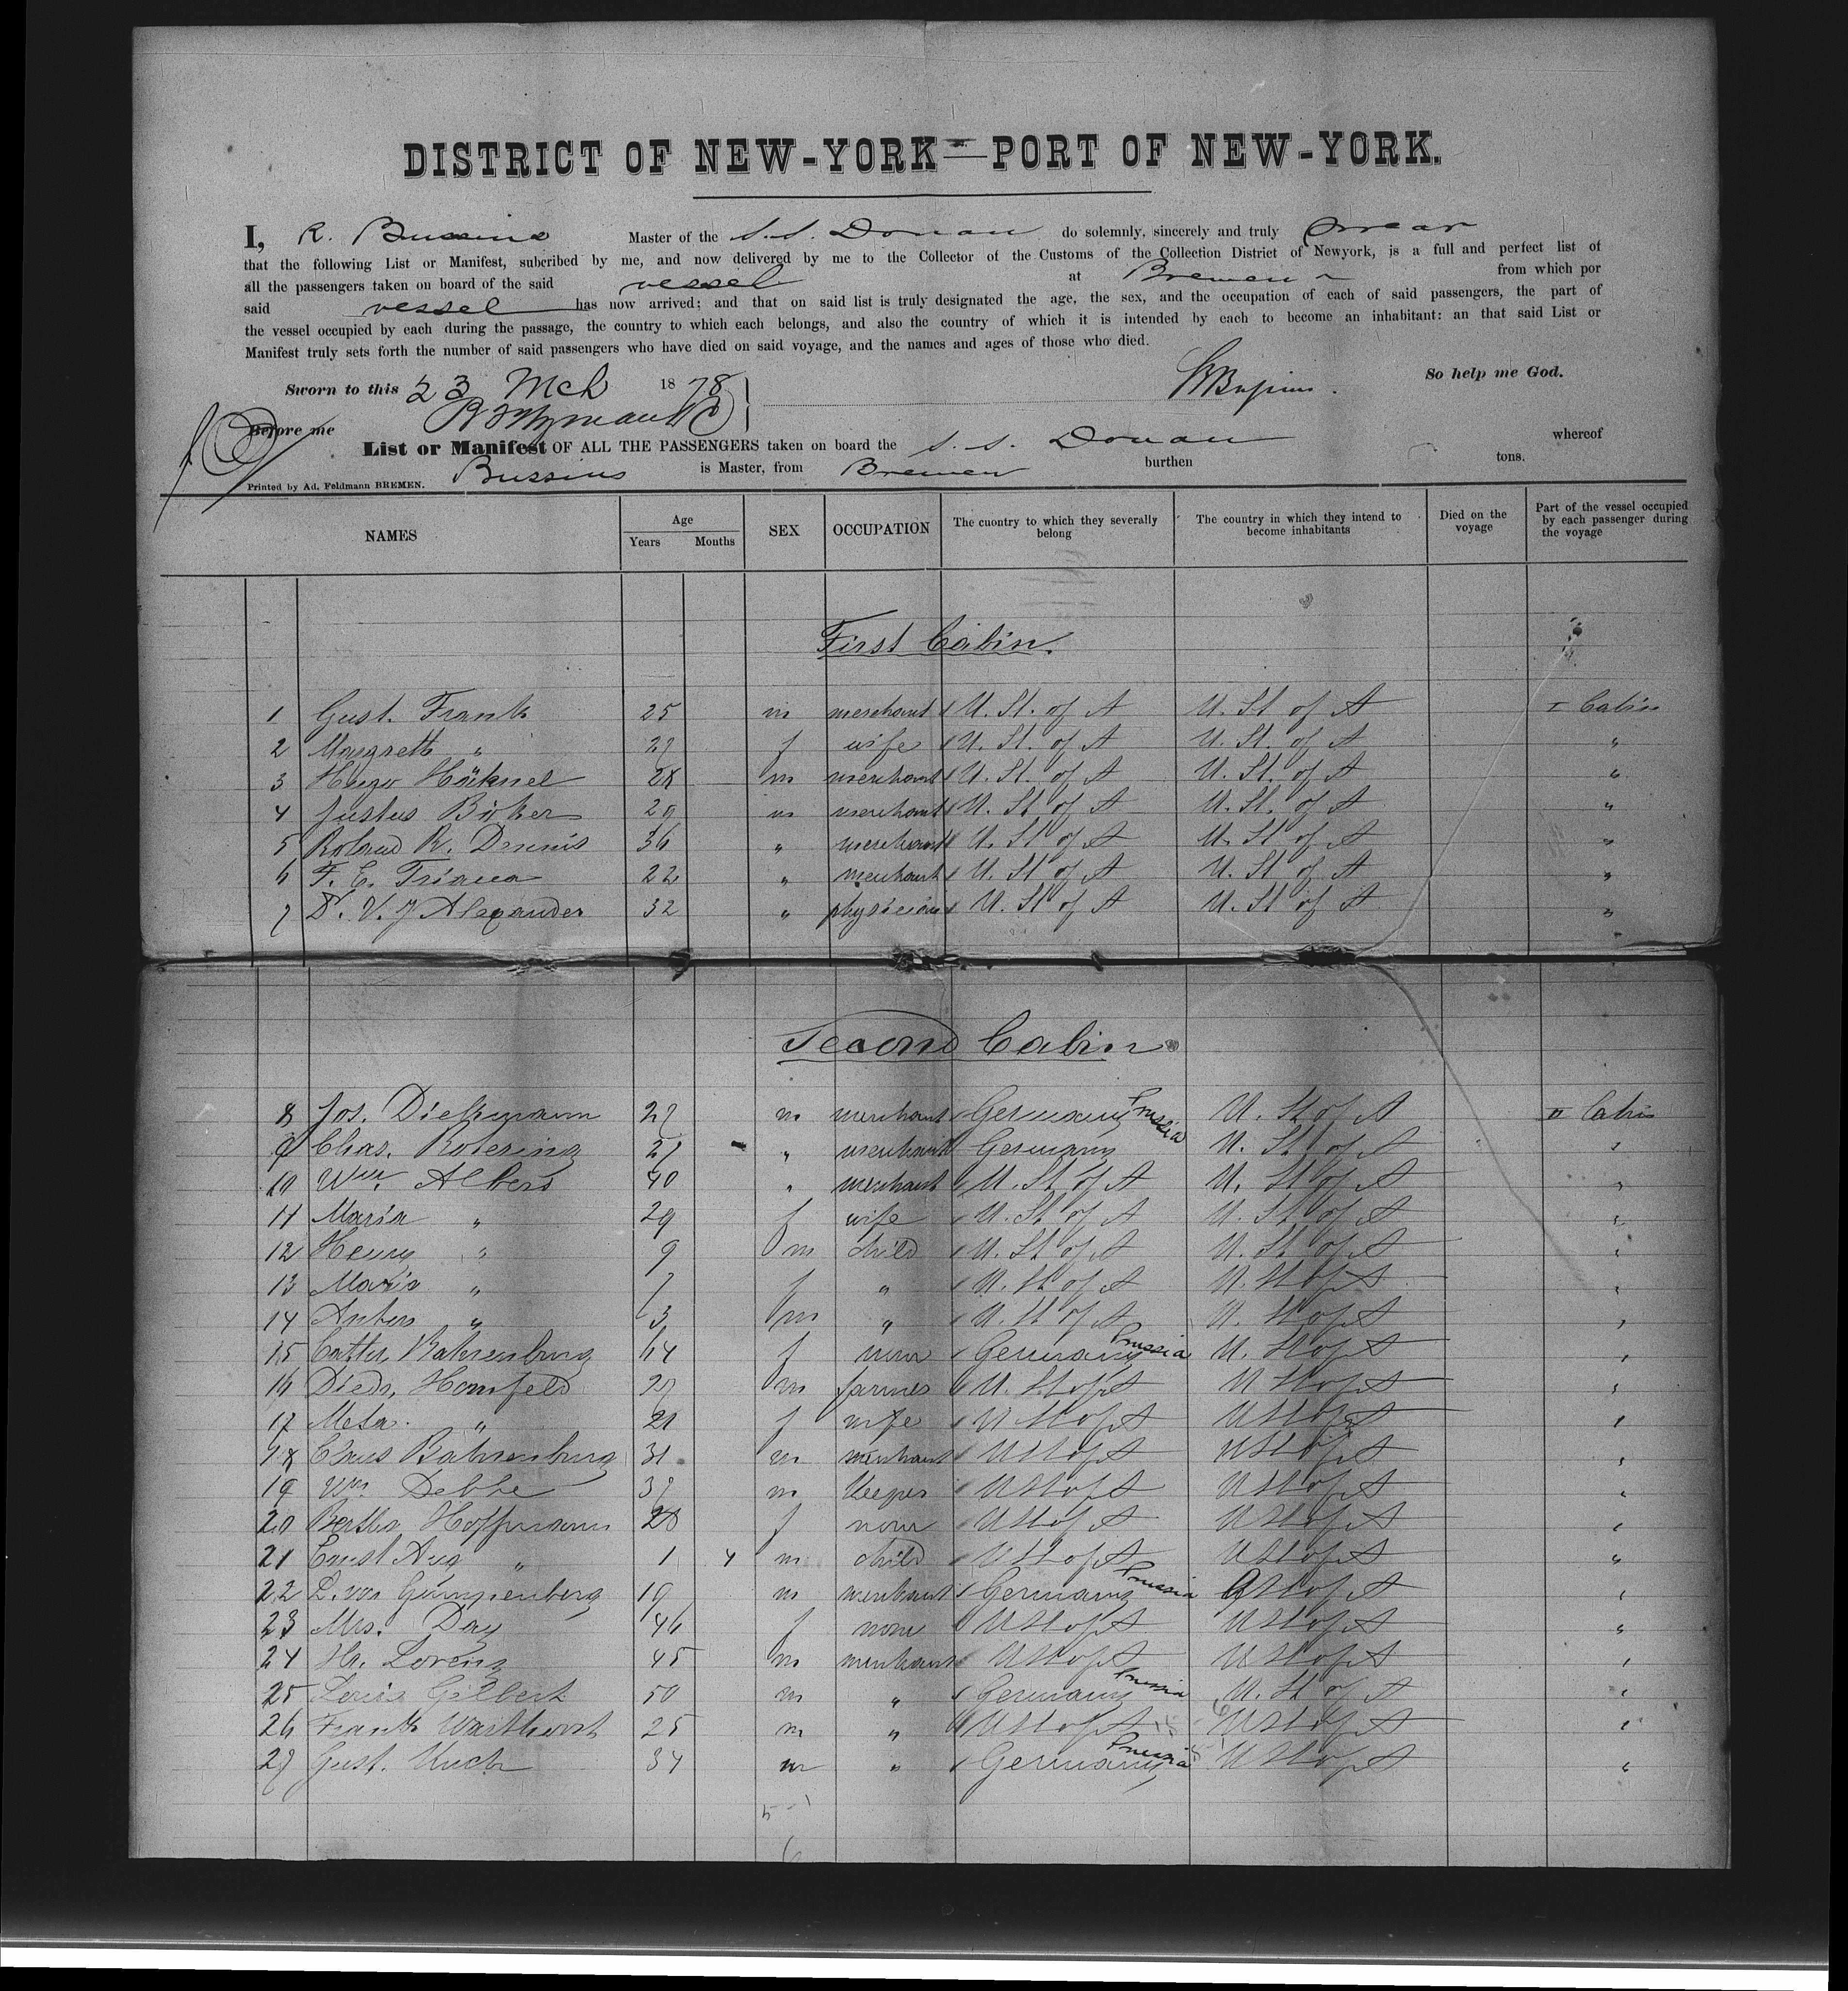 DISTRICT OF NEW-YORK—PORT OF NEW-YORK.
I, R. Bussius Master of the S.S. Donau do solemnly, sincerely and truly swear
that the following List or Manifest, subcribed by me, and now delivered by me to the Collector of the Customs of the Collection District of Newyork, is a full and perfect list of
all the passengers taken on board of the said vessel at Bremen from which por
said vessel has now arrived; and that on said list is truly designated the age, the sex, and the occupation of each of said passengers, the part of
the vessel occupied by each during the passage, the country to which each belongs, and also the country of which it is intended by each to become an inhabitant: an that said List or
Manifest truly sets forth the number of said passengers who have died on said voyage, and the names and ages of those who died.
Sworn to this 23 Mch 1878 So help me God.
Before me
List or Manifest OF ALL THE PASSENGERS taken on board the S. S. Donau whereof
Bussius is Master, from Bremen burthen tons.
Printed by Ad. Feldmann BREMEN.
NAMES Age Years Months SEX OCCUPATION The cuontry to which they severally belong The country in which they intend to become inhabitants Died on the voyage Part of the vessel occupied by each passenger during the voyage
First Cabin.
1 Gust. Frank 25 m merchant U. St. of A U. St of A I Cabin
2 Margreth " 27 f wife U. St. of A U. St. of A "
3 Hugo Häknel 28 m merchant U. St. of A U. St. of A "
4 Justus Böker 29 m merchant U. St of A U. St. of A "
5 Roland R. Dennis 36 " merchant U. St of A U. St of A "
6 F. E. Triana 22 " merchant U. St of A U. St of A "
7 Dr. V. J Alexander 32 " physician U. St of A U. St of A "
Second Cabin
8 Jos. Diekmann 27 m merchant Germany Prussia U. St of A II Cabin
9 Chas. Rotering 27 " merchant Germany U. St of A "
10 Wm. Albers 40 " merchant U. St of A U. St of A "
11 Maria " 29 f wife U. St of A U. St of A "
12 Henry " 9 m child U. St of A U. St of A "
13 Maria " 7 f " U. St of A U. St of A "
14 Anton " 3 m " U. St of A U. St of A "
15 Cathr. Bahrenburg 64 f none Germany Prussia U. St of A "
16 Diedr. Homfeld 27 m farmer U. St of A U St of A "
17 Meta " 21 f wife U St of A U St of A "
18 Claus Bahrenburg 31 m merchant U St of A U St of A "
19 Wm Debbe 37 m Keeper U St of A U St of A "
20 Bertha Hoffmann 28 f none U St of A U St of A "
21 Ernst Aug " 1 4 m child U St of A U St of A "
22 L. von Gumppenberg 19 m merchant Germany Prussia U St of A "
23 Mrs. Day 46 f none U St of A U St of A "
24 Hr. Lorenz 45 m merchant U St of A U St of A "
25 Louis Gilbert 50 m " Germany Prussia U. St of A "
26 Frank 25 m " U St of A U St of A "
27 Gust. 34 m " Germany Prussia U St of A "